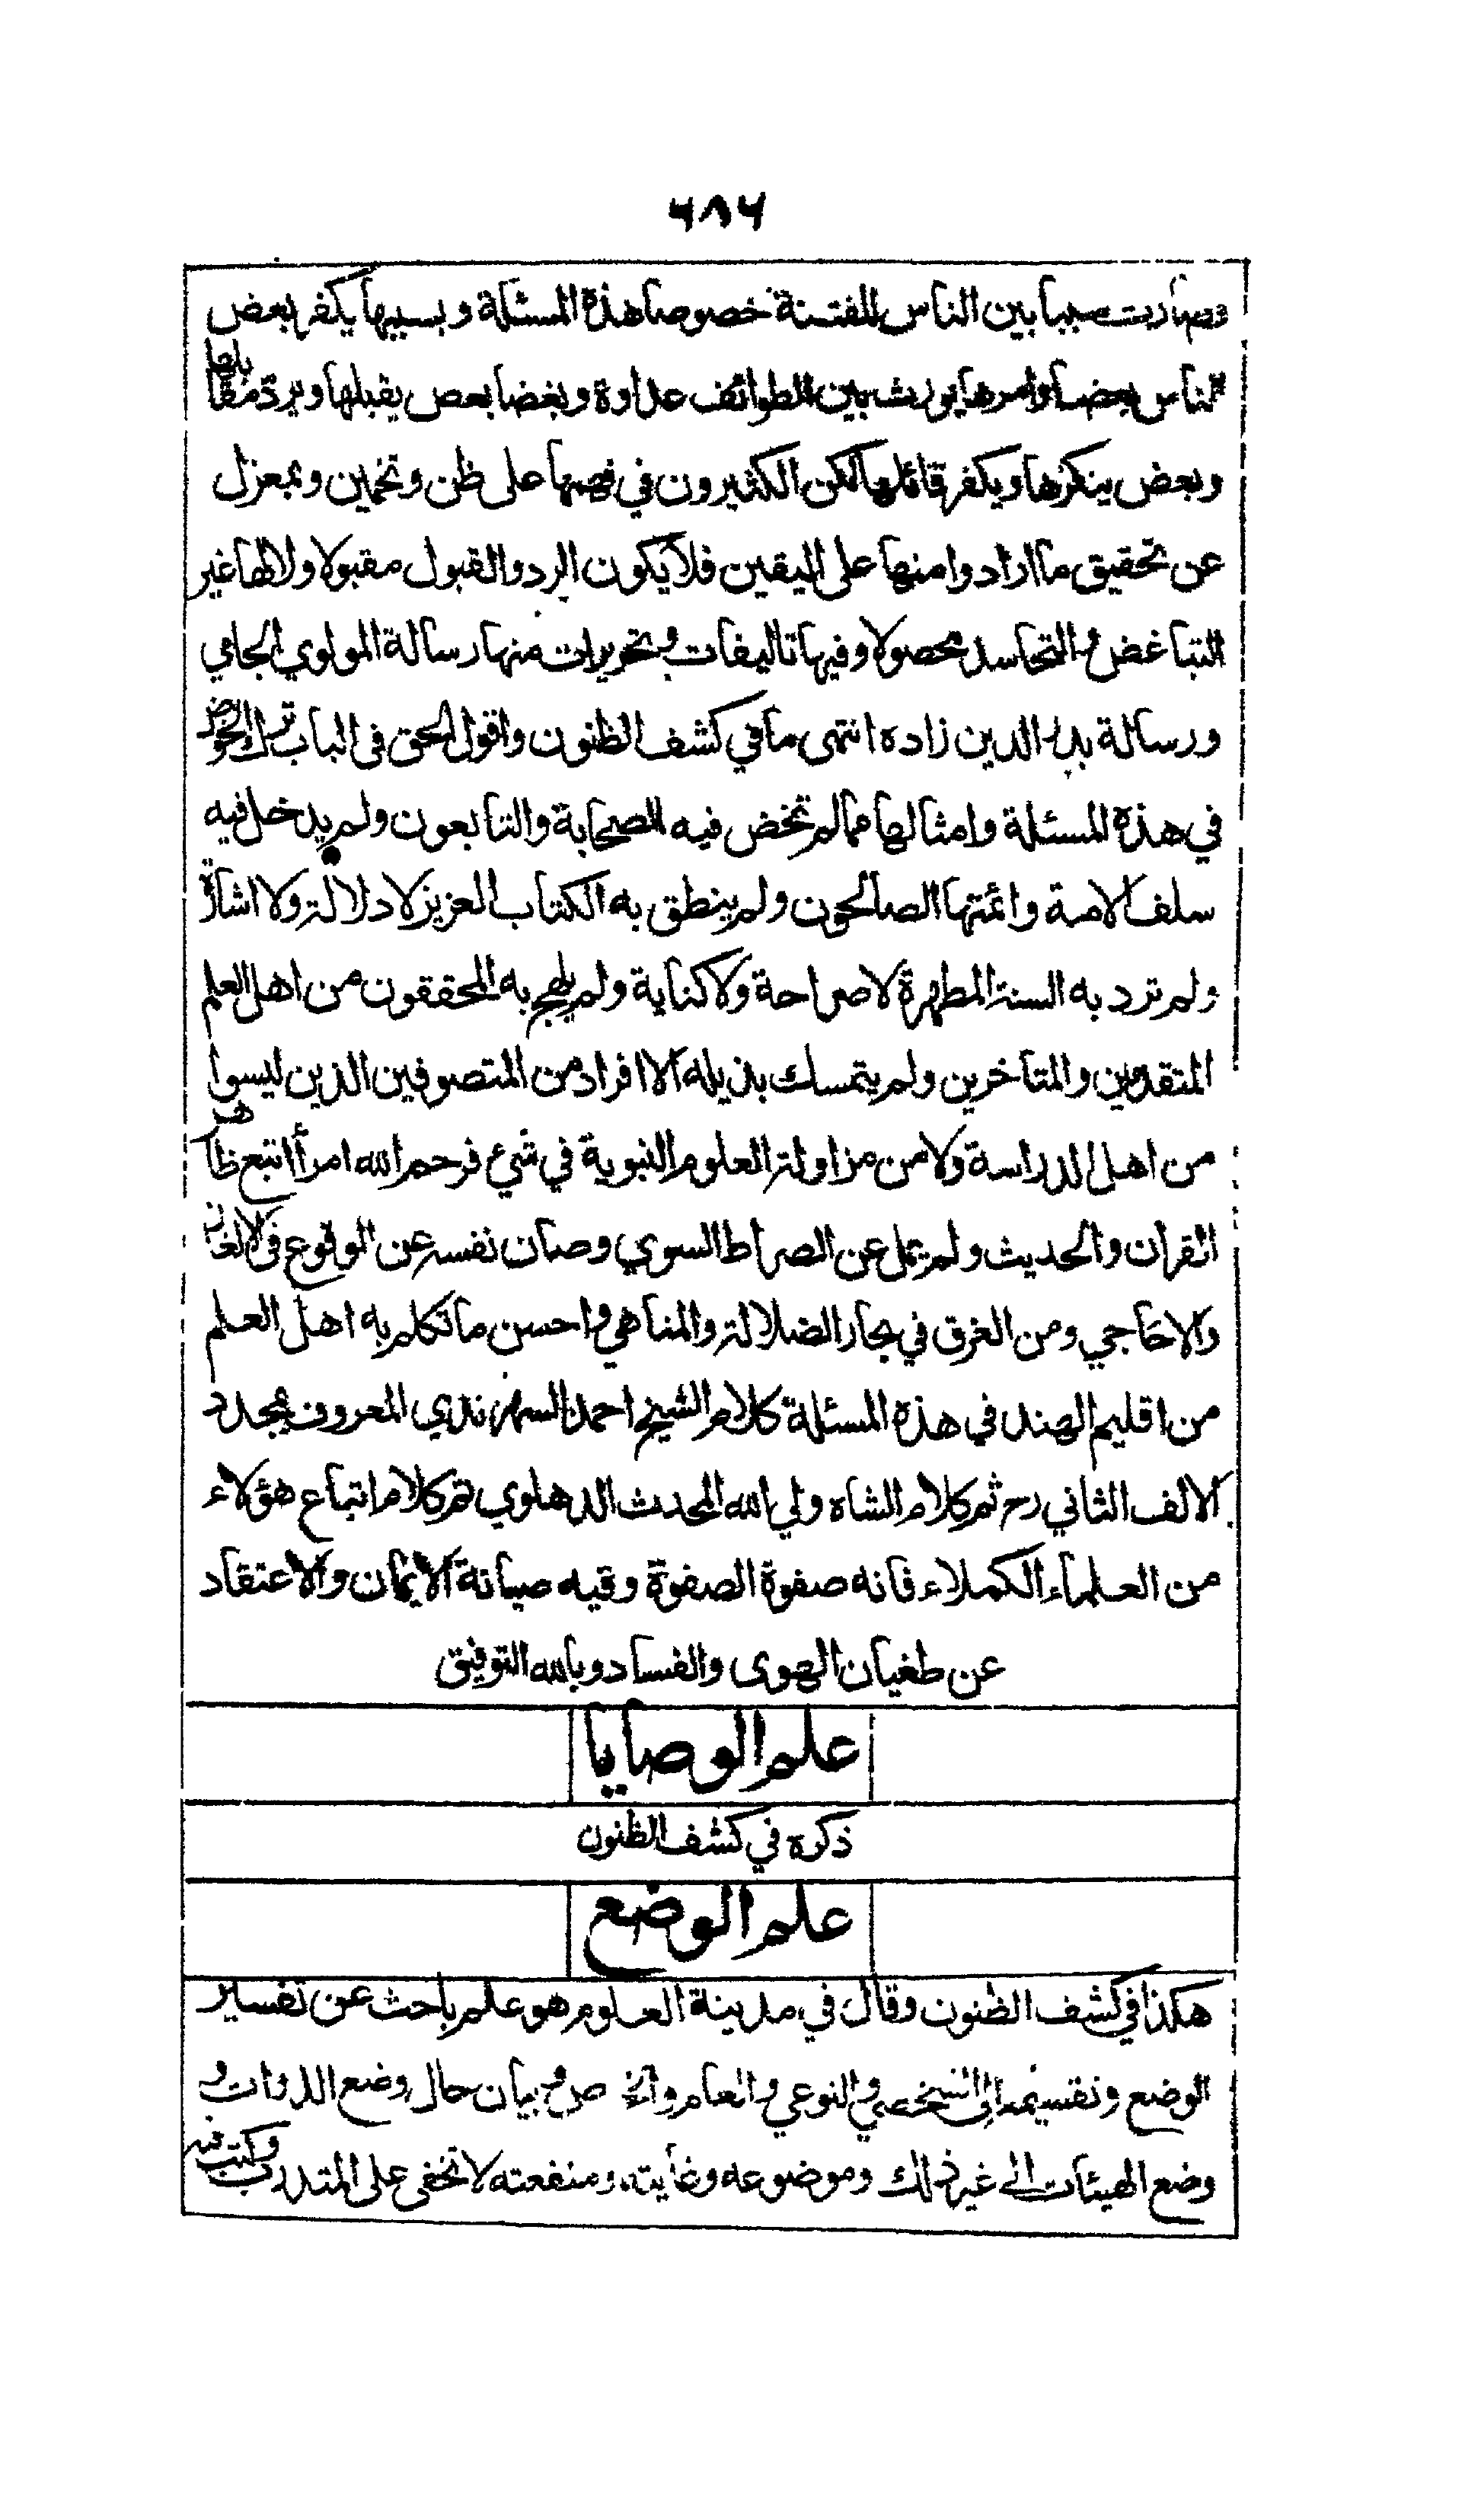 ٦٨٦
وصارت سببا بين الناس للفتنة خصوصا هذه المسئلة وبسببها يكفر بعض
الناس بعضا وامرها يورث بين الطوائف عداوة وبغضا بعض يقبلها ويرد مقابلها
وبعض ينكرها ويكفر قائلها لكن الكثيرون في فهمها على ظن وتخمين وبمعزل
عن تحقيق ما ارادوا منها على اليقين فلا يكون الرد والقبول مقبولا ولا لها غير
التباغض والتحاسد محصولا وفيها تاليفات وتحريرات منها رسالة المولوي الجامي
ورسالة بدر الدين زاده انتهى ما في كشف الظنون واقول الحق في الباب ترك الخوض
في هذه المسئلة وامثالها مما لم تخض فيه الصحابة والتابعون ولم يدخل فيه
سلف الامة وائمتها الصالحون ولم ينطق به الكتاب العزيز لا دلالة ولا اشارة
ولم ترد به السنة المطهرة لا صراحة ولا كناية ولم يلهج به المحققون من اهل العلم
المتقدمين والمتاخرين ولم يتمسك بذيله الا افراد من المتصوفين الذين ليسوا
من اهل الدراسة ولا من مزاولة العلوم النبوية في شئ فرحم الله امرأ اتبع ظاهر
القران والحديث ولم يمل عن الصراط السوي وصان نفسه عن الوقوع في الالغاز
والاحاجي ومن الغرق في بحار الضلالة والمناهي واحسن ما تكلم به اهل العلم
من اقليم الهند في هذه المسئلة كلام الشيخ احمد السهرندي المعروف بمجدد
الالف الثاني رح ثم كلام الشاه ولي الله المحدث الدهلوي ثم كلام اتباع هؤلاء
من العلماء الكملاء فانه صفوة الصفوة وفيه صيانة الايمان والاعتقاد
عن طغيان الهوى والفساد وبالله التوفيق
علم الوصايا
ذكره في كشف الظنون
علم الوضع
هكذا في كشف الظنون وقال في مدينة العلوم هو علم باحث عن تفسير
الوضع وتقسيمه الى الشخصي والنوعي والعام والخاص وبيان حال وضع الذوات و
وضع الهيئات الى غير ذلك وموضوعه وغايته ومنفعته لا تخفى على المتدرب وكتب فيه